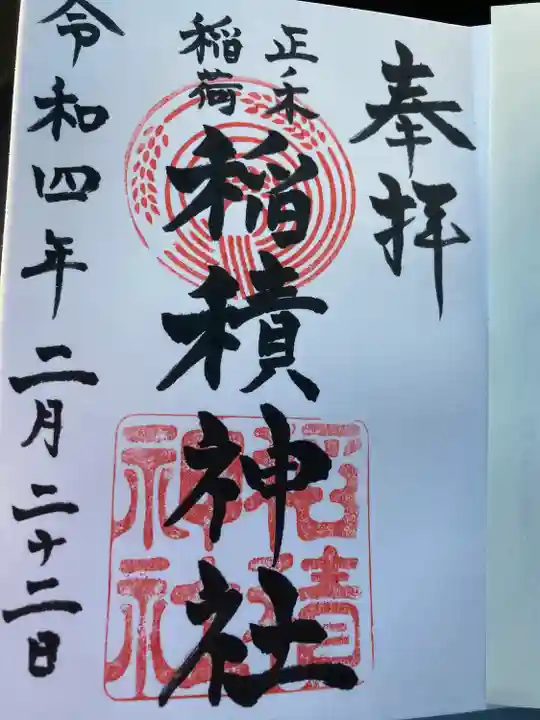 奉拝
正ノ木
稲荷
稲積神社
稲積
神社
令和四年二月二十二日